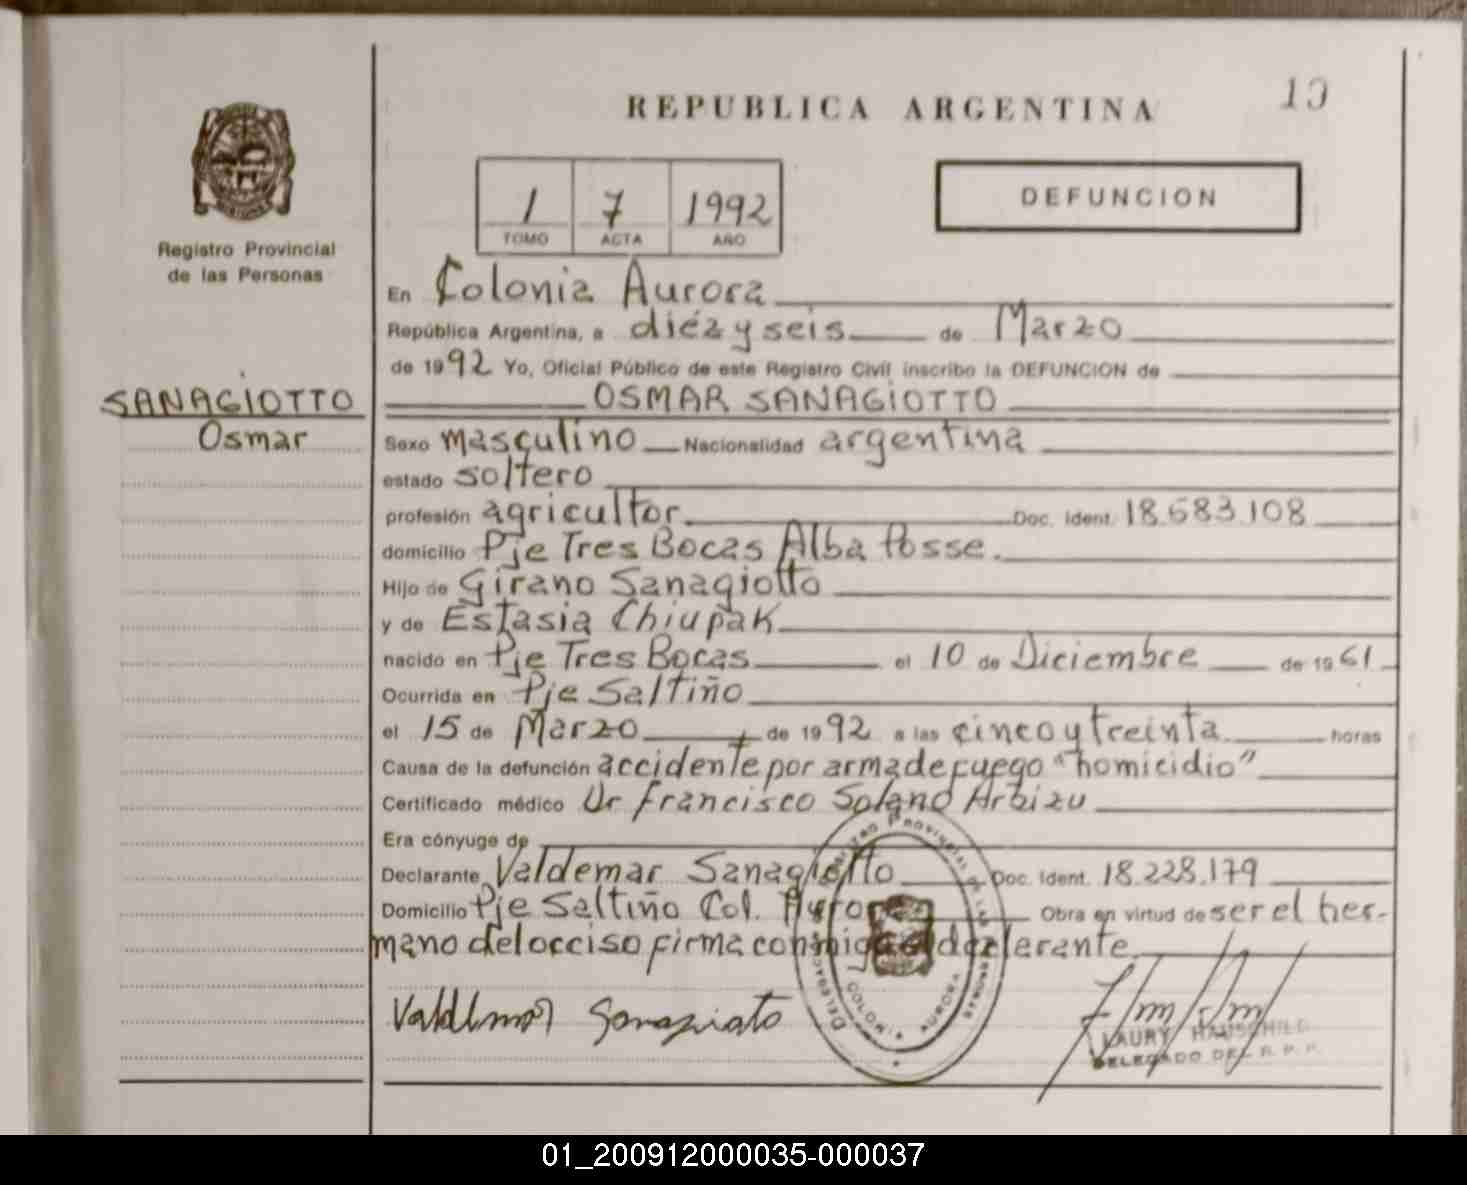 REPUBLICA ARGENTINA
10
1 7 1992
TOMO ACTA AÑO
DEFUNCION
Registro Provincial
de las Personas
SANAGIOTTO
Osmar
En Colonia Aurora
República Argentina, a diéz y seis de Marzo
de 1992 Yo, Oficial Público de este Registro Civil inscribo la DEFUNCION de
OSMAR SANAGIOTTO
Sexo masculino Nacionalidad argentina
estado soltero
profesión agricultor. Doc. Ident. 18.683.108
domicilio Pje Tres Bocas Alba Posse.
Hijo de Girano Sanagiotto
y de Estasia Chiupak
nacido en Pje Tres Bocas el 10 de Diciembre de 1961
Ocurrida en Pje Saltiño
el 15 de Marzo de 1992 a las cinco y treinta horas
Causa de la defunción accidente por arma de fuego "homicidio"
Certificado médico Dr Francisco Solano Arbizu
Era cónyuge de
Declarante Valdemar Sanagiotto Doc. Ident. 18.228.179
Domicilio Pje Saltiño Col. Aurora Obra en virtud de ser el her-
mano del occiso firma conmigo el declarante.
DELEGACION REGISTRO PROVINCIAL DE LAS PERSONAS
COLONIA AURORA
LAURY HAUSCHILD
DELEGADO DEL R. P. P.
01_200912000035-000037